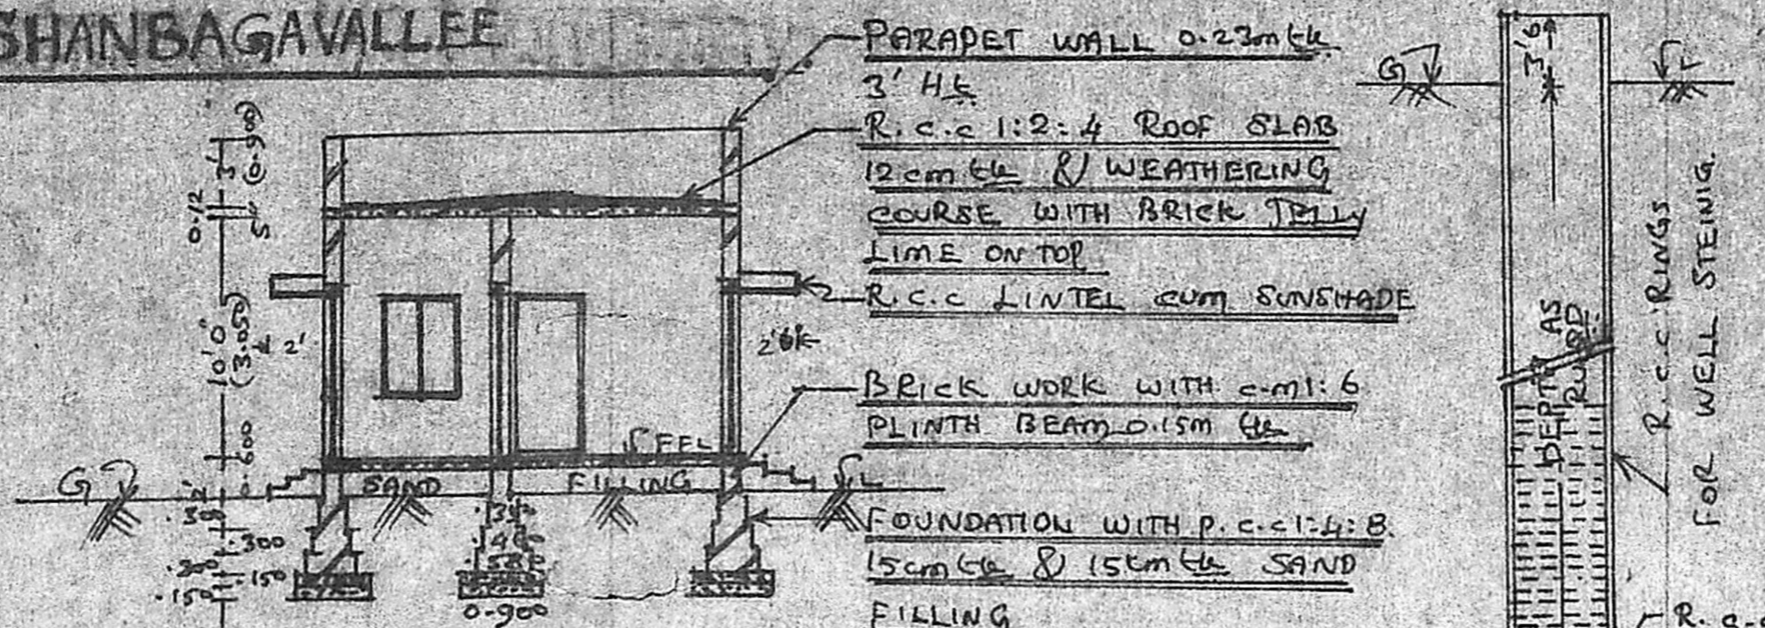 SHANBAGAVALLEE
PARAPET WALL 0.23m tk
3' Ht
R.C.C 1:2:4 ROOF SLAB
12cm tk & WEATHERING
COURSE WITH BRICK JELLY
LIME ON TOP
R.C.C LINTEL CUM SUNSHADE
BRICK WORK WITH C.M 1:6
PLINTH BEAM 0.15m tk
FOUNDATION WITH P.C.C 1:4:8.
15cm tk & 15cm tk SAND
FILLING
3'
(0.900)
0.12
5"
10'0"
(3.050)
2'
0.600
2'
.300
.300
.150
.150
FFL
SAND FILLING
G L
0.900
G L
3'6
DEPTH AS
R.C.C RINGS
FOR WELL STEINIG.
R.C.C